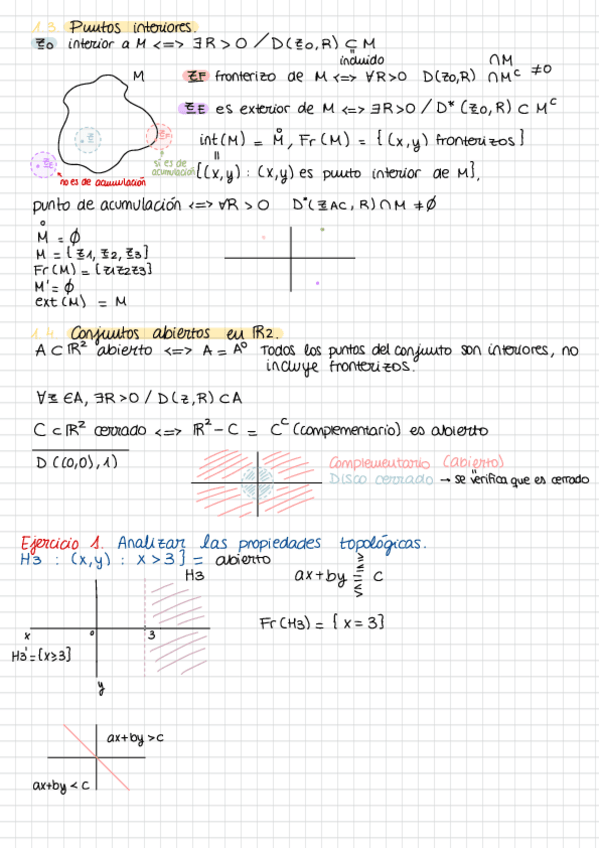 1.3. Puntos interiores.
z0 interior a M <=> ∃R > 0 / D(z0,R) ⊂ M
incluido
M
zF fronterizo de M <=> ∀R>0 D(z0,R) ∩M ∩M^c ≠0
zE es exterior de M <=> ∃R>0 / D*(z0,R) ⊂ M^c
int(M) = M̊, Fr(M) = {(x,y) fronterizos}
=
{(x,y) : (x,y) es punto interior de M},
no es de acumulación
si es de acumulación
punto de acumulación <=> ∀R > 0 D*(zAC, R) ∩ M ≠ ∅
M̊ = ∅
M = {z1, z2, z3}
Fr(M) = {z1z2z3}
M' = ∅
ext(M) = M
1.4. Conjuntos abiertos en R2.
A ⊂ R² abierto <=> A = A° Todos los puntos del conjunto son interiores, no
incluye fronterizos.
∀z ∈A, ∃R>0 / D(z,R) ⊂ A
C ⊂ R² cerrado <=> R² - C = C^c (complementario) es abierto
D((0,0),1)
Complementario (abierto)
Disco cerrado → se verifica que es cerrado
Ejercicio 1. Analizar las propiedades topológicas.
H3 : (x,y) : x > 3} = abierto
H3
ax+by > ≥ = ≤ < c
Fr(H3) = { x = 3}
x 0 3
H3' = {x≥3}
y
ax+by >c
ax+by < c